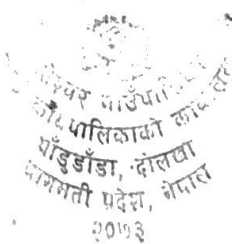 गाउँपालिका
गाउँपालिकाको कार्यालय
चाँडुडाँडा, दोलखा
बागमती प्रदेश, नेपाल
२०७३